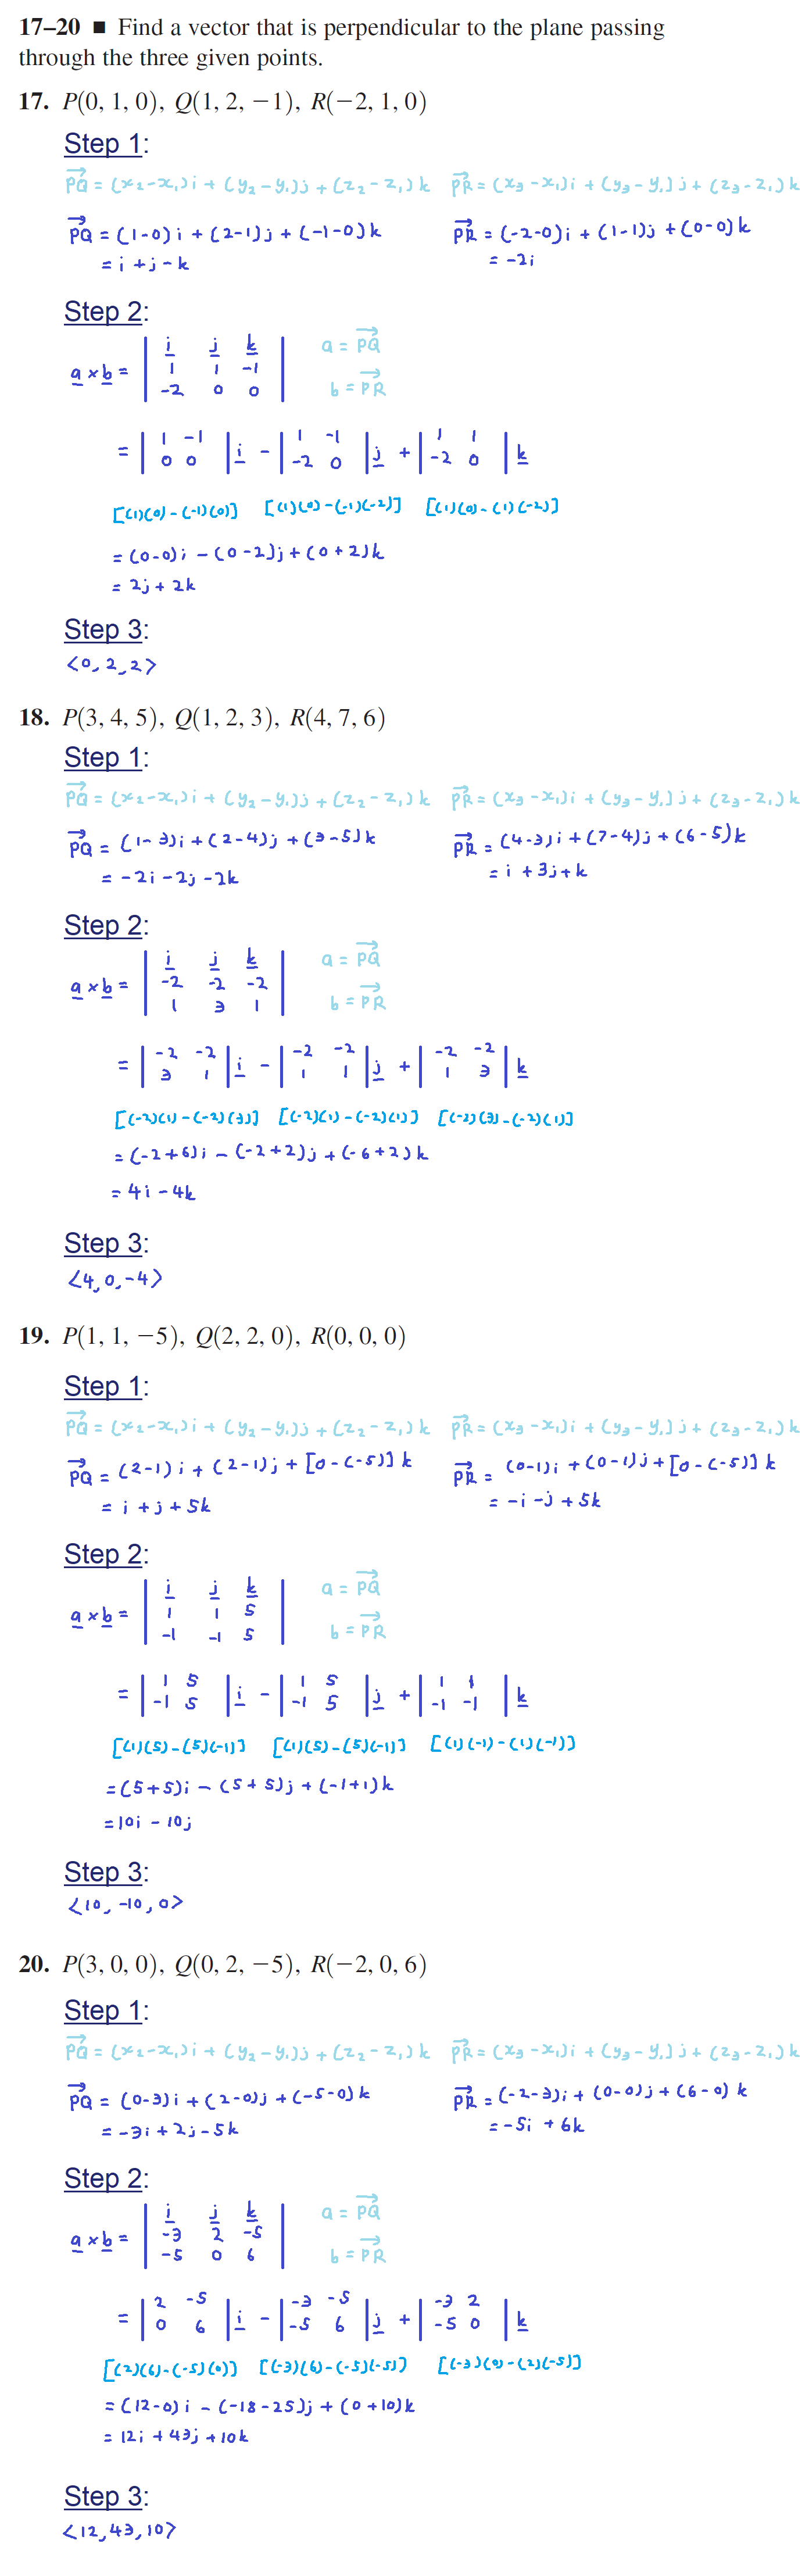 17–20 ■ Find a vector that is perpendicular to the plane passing
through the three given points.
17. P(0, 1, 0), Q(1, 2, −1), R(−2, 1, 0)
Step 1:
PQ = (x₂-x₁)i + (y₂-y₁)j + (z₂-z₁)k PR = (x₃-x₁)i + (y₃-y₁)j + (z₃-z₁)k
PQ = (1-0)i + (2-1)j + (-1-0)k PR = (-2-0)i + (1-1)j + (0-0)k
= i + j - k = -2i
Step 2:
i j k a = PQ
a × b = 1 1 -1
-2 0 0 b = PR
= | 1 -1 | i - | 1 -1 | j + | 1 1 | k
0 0 -2 0 -2 0
[(1)(0) - (-1)(0)] [(1)(0) - (-1)(-2)] [(1)(0) - (1)(-2)]
= (0-0)i - (0-2)j + (0+2)k
= 2j + 2k
Step 3:
<0, 2, 2>
18. P(3, 4, 5), Q(1, 2, 3), R(4, 7, 6)
Step 1:
PQ = (x₂-x₁)i + (y₂-y₁)j + (z₂-z₁)k PR = (x₃-x₁)i + (y₃-y₁)j + (z₃-z₁)k
PQ = (1-3)i + (2-4)j + (3-5)k PR = (4-3)i + (7-4)j + (6-5)k
= -2i - 2j - 2k = i + 3j + k
Step 2:
i j k a = PQ
a × b = -2 -2 -2
1 3 1 b = PR
= | -2 -2 | i - | -2 -2 | j + | -2 -2 | k
3 1 1 1 1 3
[(-2)(1) - (-2)(3)] [(-2)(1) - (-2)(1)] [(-2)(3) - (-2)(1)]
= (-2+6)i - (-2+2)j + (-6+2)k
= 4i - 4k
Step 3:
<4, 0, -4>
19. P(1, 1, −5), Q(2, 2, 0), R(0, 0, 0)
Step 1:
PQ = (x₂-x₁)i + (y₂-y₁)j + (z₂-z₁)k PR = (x₃-x₁)i + (y₃-y₁)j + (z₃-z₁)k
PQ = (2-1)i + (2-1)j + [0-(-5)]k PR = (0-1)i + (0-1)j + [0-(-5)]k
= i + j + 5k = -i - j + 5k
Step 2:
i j k a = PQ
a × b = 1 1 5
-1 -1 5 b = PR
= | 1 5 | i - | 1 5 | j + | 1 1 | k
-1 5 -1 5 -1 -1
[(1)(5) - (5)(-1)] [(1)(5) - (5)(-1)] [(1)(-1) - (1)(-1)]
= (5+5)i - (5+5)j + (-1+1)k
= 10i - 10j
Step 3:
<10, -10, 0>
20. P(3, 0, 0), Q(0, 2, −5), R(−2, 0, 6)
Step 1:
PQ = (x₂-x₁)i + (y₂-y₁)j + (z₂-z₁)k PR = (x₃-x₁)i + (y₃-y₁)j + (z₃-z₁)k
PQ = (0-3)i + (2-0)j + (-5-0)k PR = (-2-3)i + (0-0)j + (6-0)k
= -3i + 2j - 5k = -5i + 6k
Step 2:
i j k a = PQ
a × b = -3 2 -5
-5 0 6 b = PR
= | 2 -5 | i - | -3 -5 | j + | -3 2 | k
0 6 -5 6 -5 0
[(2)(6) - (-5)(0)] [(-3)(6) - (-5)(-5)] [(-3)(0) - (2)(-5)]
= (12-0)i - (-18-25)j + (0+10)k
= 12i + 43j + 10k
Step 3:
<12, 43, 10>